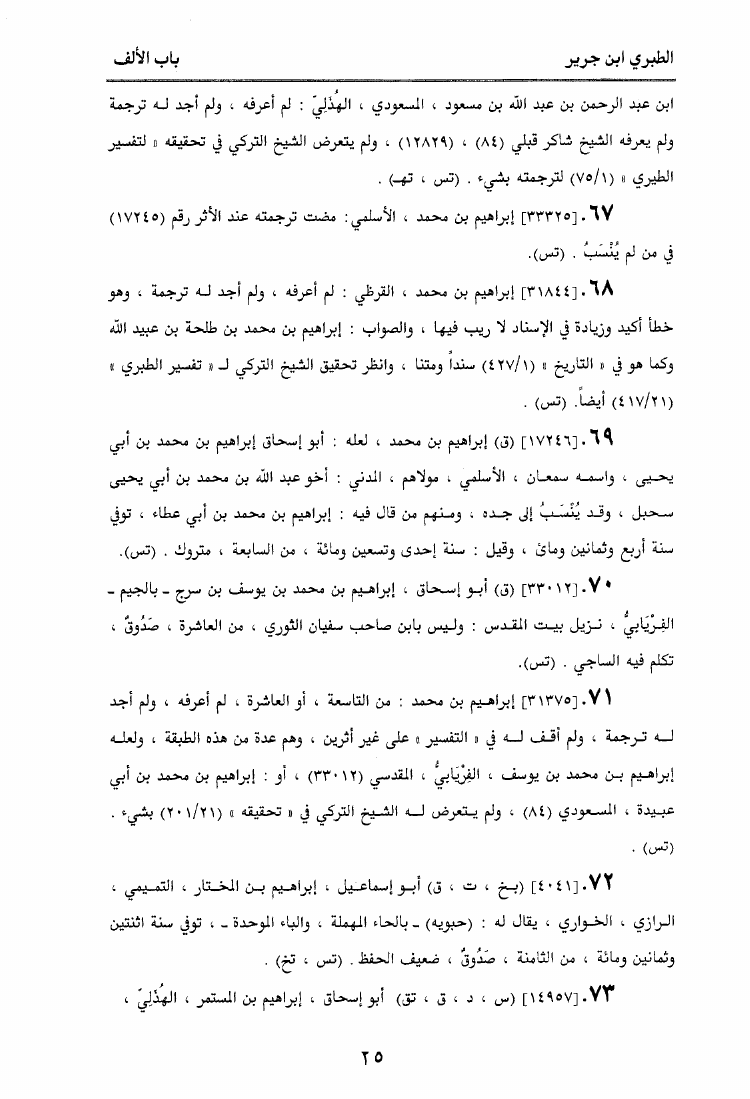 الطبري ابن جرير
باب الألف
ابن عبد الرحمن بن عبد الله بن مسعود ، المسعودي ، الهُذَلِيّ : لم أعرفه ، ولم أجد لـه ترجمة
ولم يعرفه الشيخ شاكر قبلي (٨٤) ، (١٢٨٢٩) ، ولم يتعرض الشيخ التركي في تحقيقه « لتفسير
الطبري » (٧٥/١) لترجمته بشيء . (تس ، تهـ) .
٦٧. [٣٣٣٢٥] إبراهيم بن محمد ، الأسلمي: مضت ترجمته عند الأثر رقم (١٧٢٤٥)
في من لم يُنْسَبُ . (تس).
٦٨. [٣١٨٤٤] إبراهيم بن محمد ، القرظي : لم أعرفه ، ولم أجد لـه ترجمة ، وهو
خطأ أكيد وزيادة في الإسناد لا ريب فيها ، والصواب : إبراهيم بن محمد بن طلحة بن عبيد الله
وكما هو في « التاريخ » (٤٢٧/١) سنداً ومتنا ، وانظر تحقيق الشيخ التركي لـ « تفسير الطبري »
(٤١٧/٢١) أيضاً. (تس) .
٦٩. [١٧٢٤٦] (ق) إبراهيم بن محمد ، لعله : أبو إسحاق إبراهيم بن محمد بن أبي
يحيى ، واسمه سمعان ، الأسلمي ، مولاهم ، المدني : أخو عبد الله بن محمد بن أبي يحيى
سحبل ، وقد يُنْسَبُ إلى جده ، ومنهم من قال فيه : إبراهيم بن محمد بن أبي عطاء ، توفي
سنة أربع وثمانين ومائ ، وقيل : سنة إحدى وتسعين ومائة ، من السابعة ، متروك . (تس).
٧٠. [٣٣٠١٢] (ق) أبو إسحاق ، إبراهيم بن محمد بن يوسف بن سرج ـ بالجيم ـ
الفِرْيَابيُّ ، نزيل بيت المقدس : وليس بابن صاحب سفيان الثوري ، من العاشرة ، صَدُوقٌ ،
تكلم فيه الساجي . (تس).
٧١. [٣١٣٧٥] إبراهيم بن محمد : من التاسعة ، أو العاشرة ، لم أعرفه ، ولم أجد
لـه ترجمة ، ولم أقف لـه في « التفسير » على غير أثرين ، وهم عدة من هذه الطبقة ، ولعلـه
إبراهيم بن محمد بن يوسف ، الفِرْيَابيُّ ، المقدسي (٣٣٠١٢) ، أو : إبراهيم بن محمد بن أبي
عبيدة ، المسعودي (٨٤) ، ولم يتعرض لـه الشيخ التركي في « تحقيقه » (٢٠١/٢١) بشيء .
(تس) .
٧٢. [٤٠٤١] (بخ ، ت ، ق) أبو إسماعيل ، إبراهيم بن المختار ، التميمي ،
الرازي ، الخواري ، يقال له : (حبويه) ـ بالحاء المهملة ، والباء الموحدة ـ ، توفي سنة اثنتين
وثمانين ومائة ، من الثامنة ، صَدُوقٌ ، ضعيف الحفظ . (تس ، تخ) .
٧٣. [١٤٩٥٧] (س ، د ، ق ، تق) أبو إسحاق ، إبراهيم بن المستمر ، الهُذَلِيّ ،
٢٥